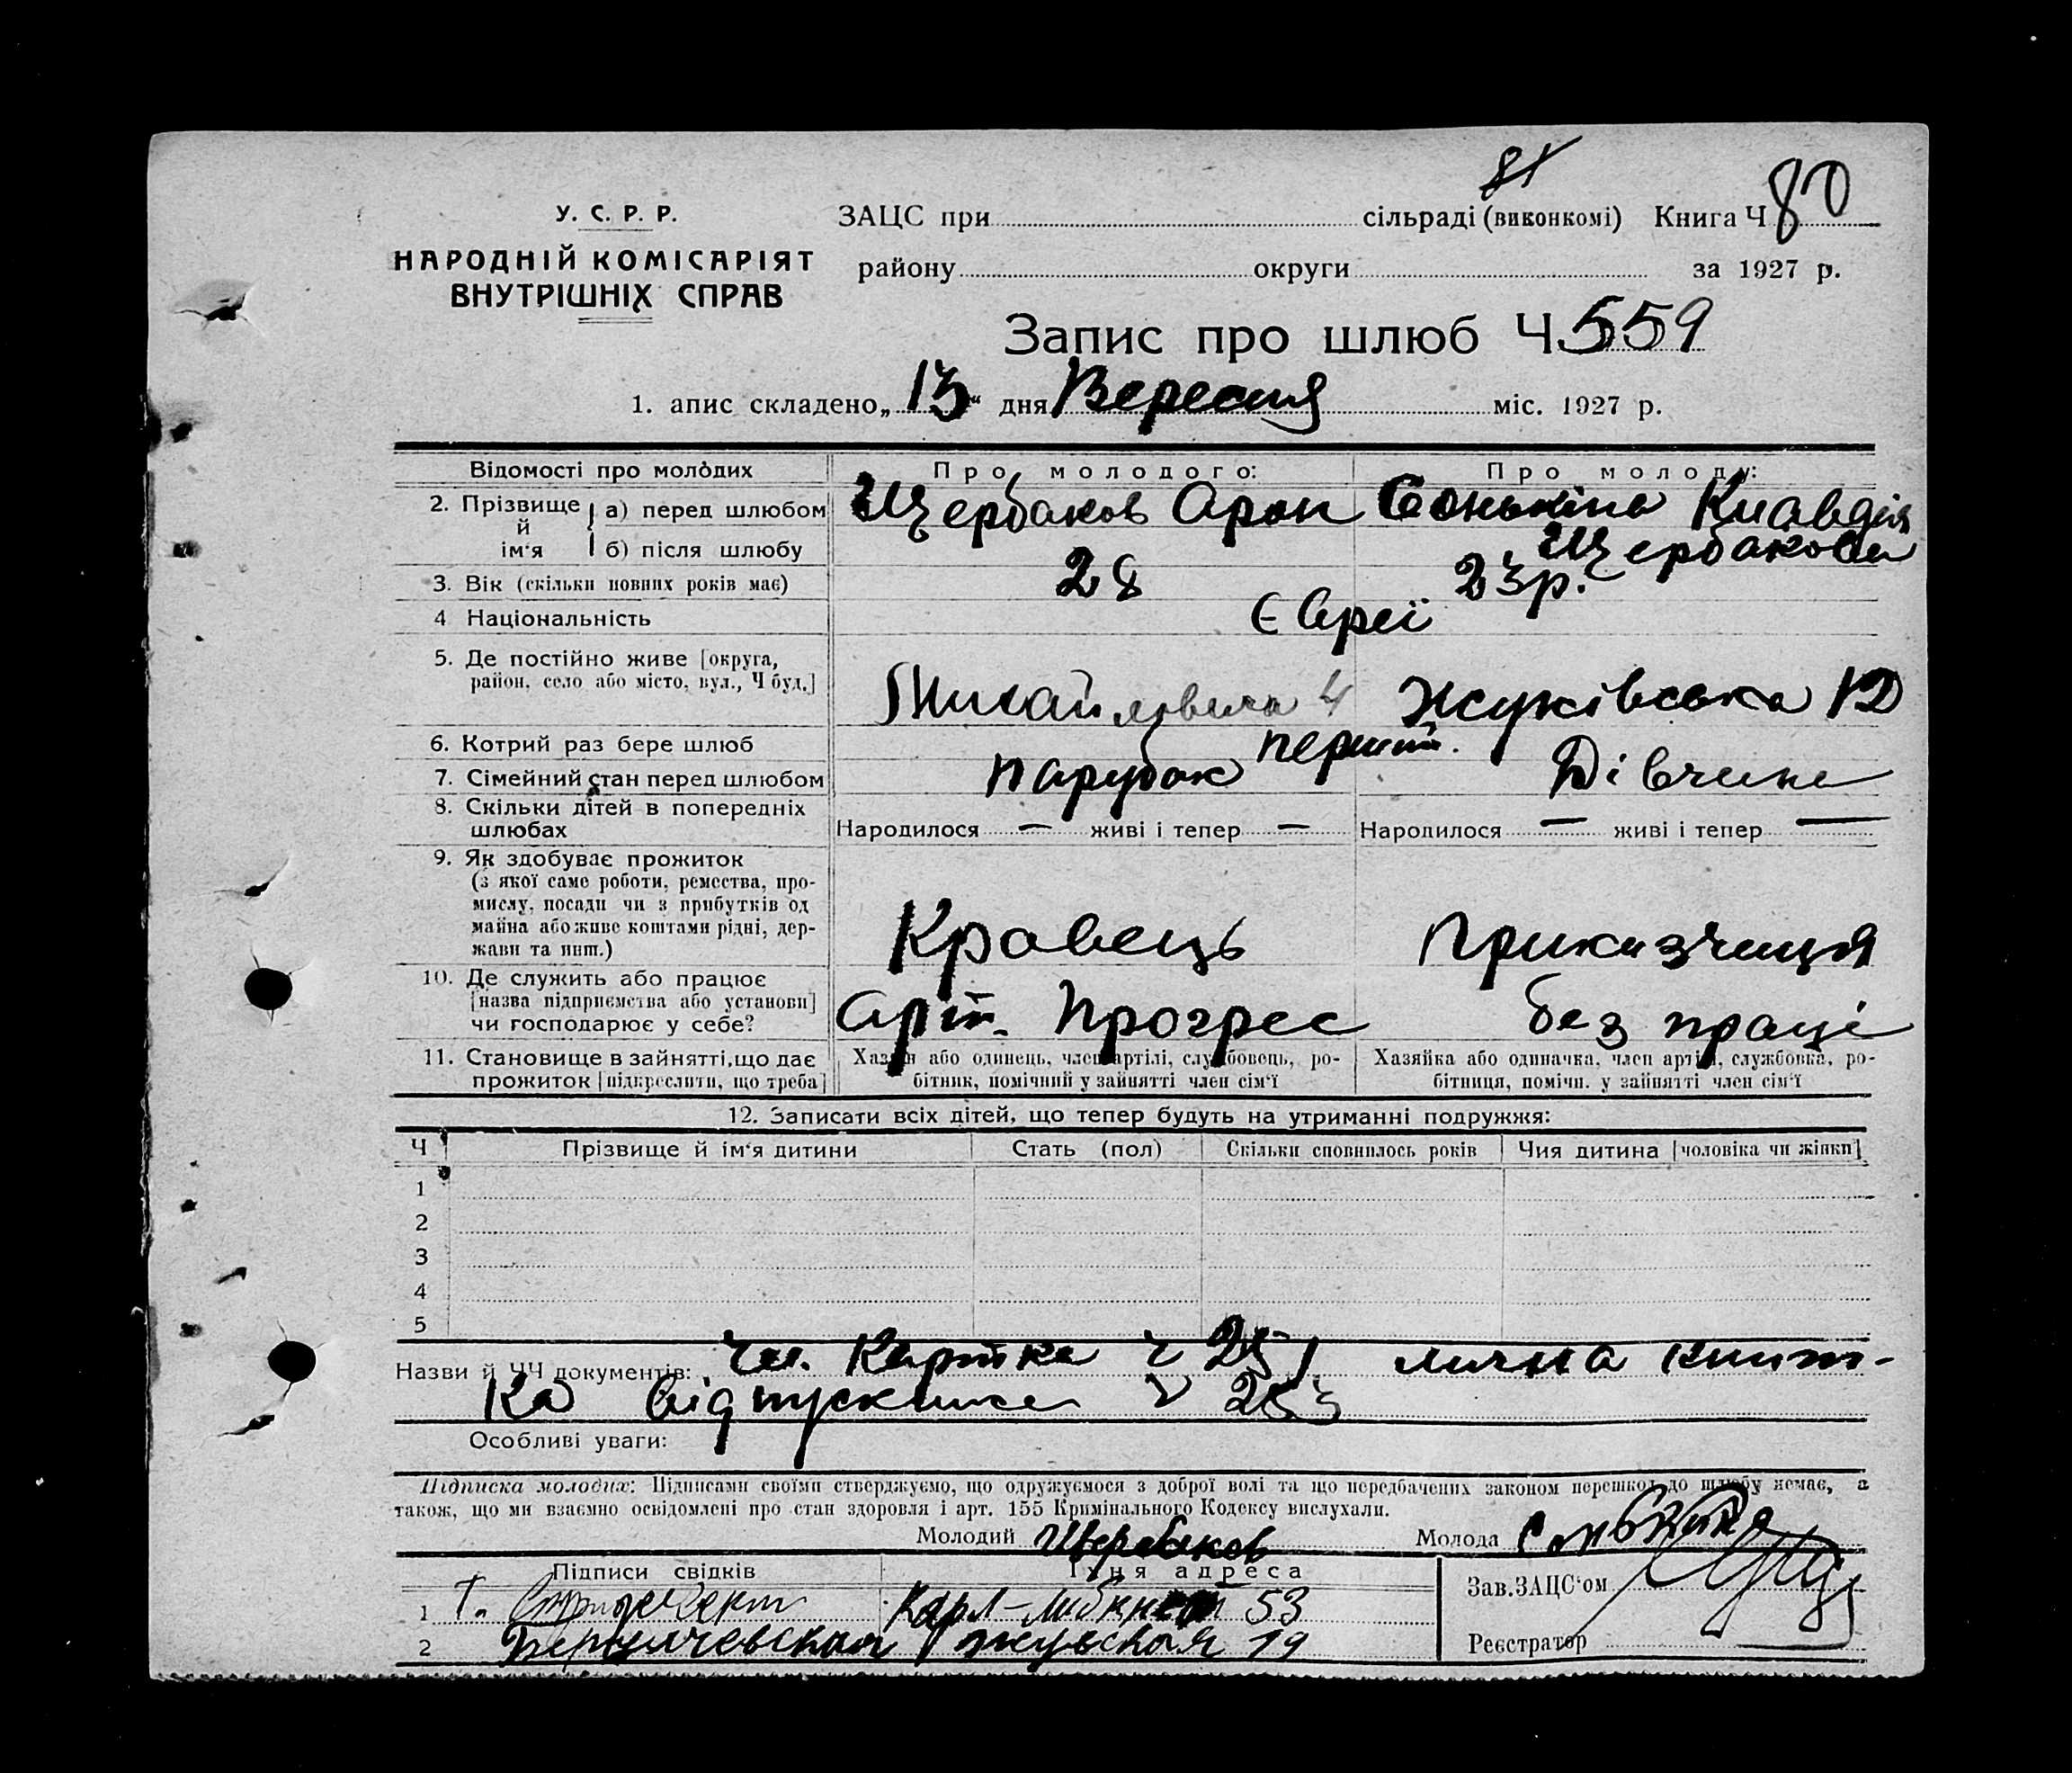 81
У. С. Р. Р.
НАРОДНІЙ КОМІСАРІЯТ
ВНУТРІШНІХ СПРАВ
ЗАЦС при сільраді (виконкомі) Книга Ч 80
району округи за 1927 р.
Запис про шлюб Ч. 559
1. апис складено „13“ дня Вересня міс. 1927 р.
Відомості про молодих Про молодого: Про молоду:
2. Прізвище й ім‘я а) перед шлюбом Щербаков Арон Клавдія
б) після шлюбу Щербакова
3. Вік (скільки повних років має) 28 23 р.
4 Національність Євреї
5. Де постійно живе [округа,
район, село або місто, вул., Ч буд.] 4 12
6. Котрий раз бере шлюб
7. Сімейний стан перед шлюбом парубок Дівчина
8. Скільки дітей в попередніх
шлюбах Народилося — живі і тепер — Народилося — живі і тепер —
9. Як здобуває прожиток
(з якої саме роботи, ремества, про-
мислу, посади чи з прибутків од
майна або живе коштами рідні, дер-
жави та инш.) Кравець Приказчиця
10. Де служить або працює
[назва підприємства або установи]
чи господарює у себе? Арт. Прогрес без праці
11. Становище в зайнятті, що дає
прожиток [підкреслити, що треба]
Хазяїн або одинець, член артілі, службовець, ро-
бітник, помічний у зайнятті член сім‘ї
Хазяйка або одиначка, член артілі, службовка, ро-
бітниця, помічн. у зайнятті член сім‘ї
12. Записати всіх дітей, що тепер будуть на утриманні подружжя:
Ч Прізвище й ім‘я дитини Стать (пол) Скільки сповнилось років Чия дитина [чоловіка чи жінки]
1
2
3
4
5
Назви й ЧЧ документів: Чл. Картка ч 251 лична книж-
ка ч
Особливі уваги:
Підписка молодих: Підписами своїми стверджуємо, що одружуємося з доброї волі та що передбачених законом перешкод до шлюбу немає, а
також, що ми взаємно освідомлені про стан здоровля і арт. 155 Кримінального Кодексу вислухали.
Молодий Щербаков Молода
Підписи свідків Їхня адреса
1 Т. Карл-Либкнехт 53
2 19
Зав.ЗАЦС‘ом
Реєстратор